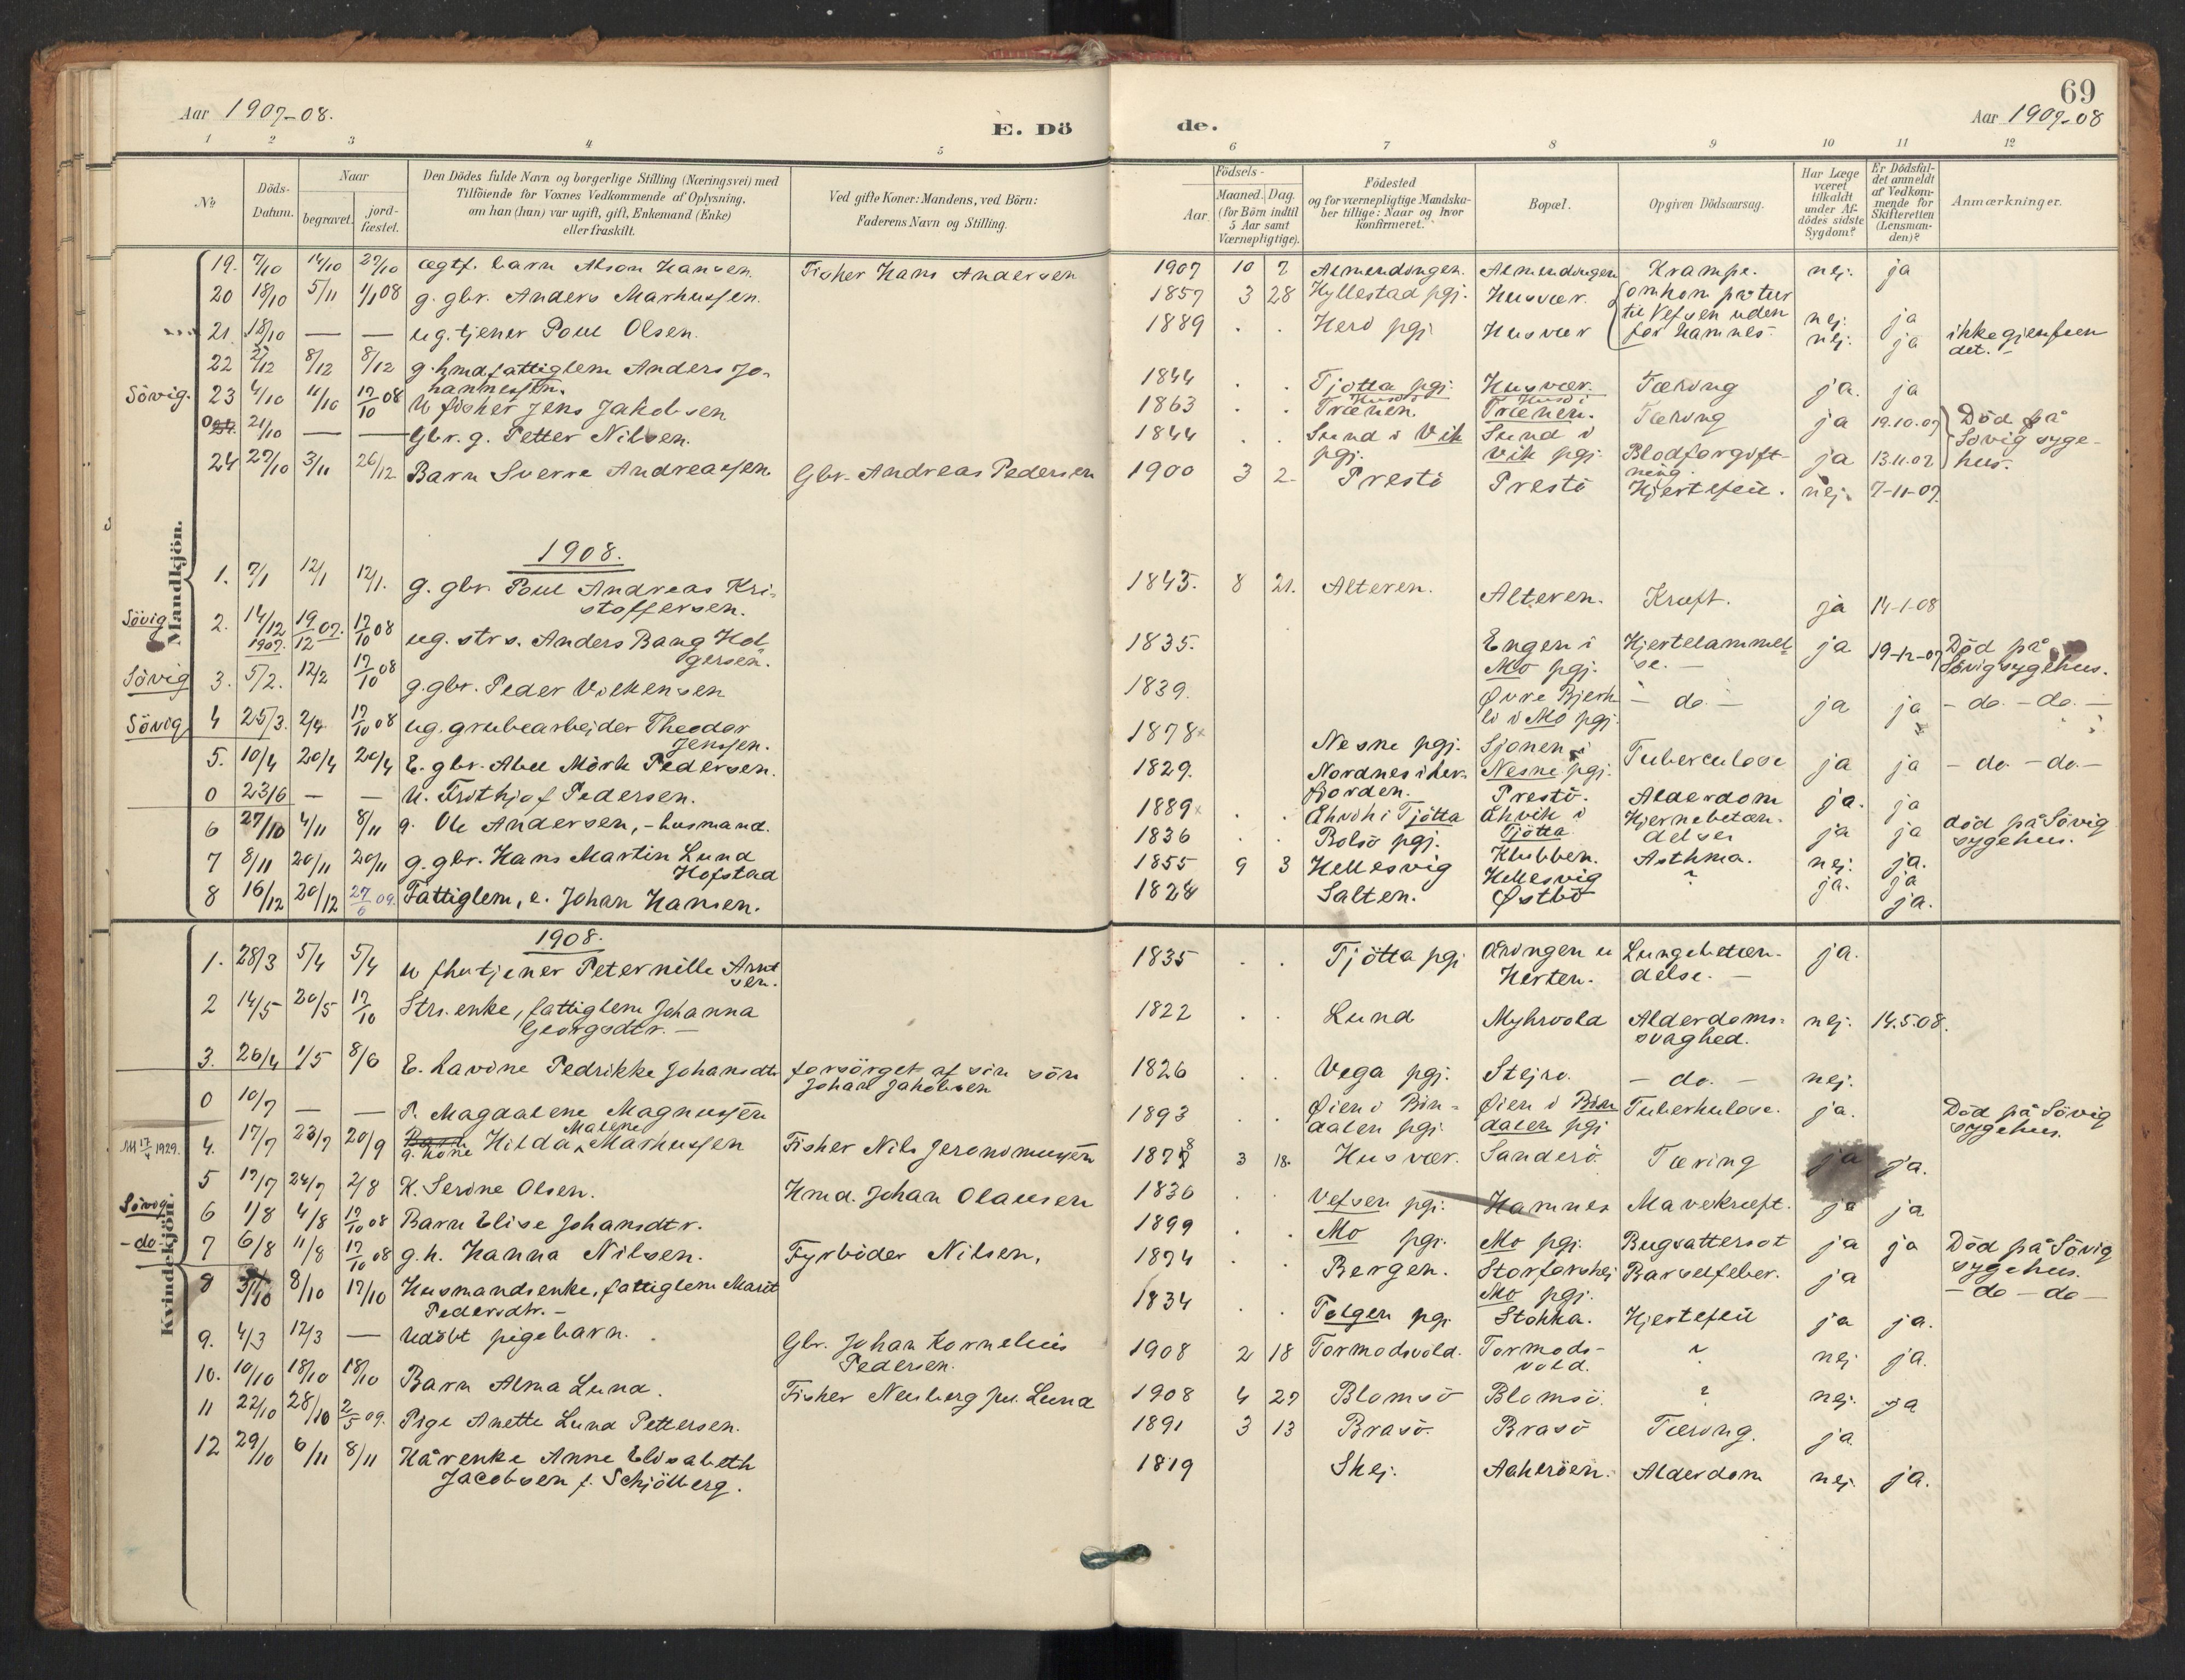 69
Aar 1907-08.
E. Dö
de.
Aar 1907-08
1 2 3 4 5 6 7 8 9 10 11 12
No
Döds-Datum.
Naar
begravet.
jord-fæstet.
Den Dödes fulde Navn og borgerlige Stilling (Næringsvei) med
Tilföiende for Voxnes Vedkommende af Oplysning,
om han (hun) var ugift, gift, Enkemand (Enke)
eller fraskilt.
Ved gifte Koner: Mandens, ved Börn:
Faderens Navn og Stilling.
Födsels-
Aar.
Maaned. Dag.
(for Börn indtil
5 Aar samt
Værnepligtige).
Födested
og for værnepligtige Mandska-
ber tillige: Naar og hvor
konfirmeret.
Bopæl.
Opgiven Dödsaarsag.
Har Læge
været
tilkaldt
under Af-
dödes sidste
Sygdom?
Er Dödsfal-
det anmeldt
af Vedkom-
mende for
Skifteretten
(Lensman-
den)?
Anmærkninger.
Mandkjön.
19. 7/10 14/10 27/10 ægtf. barn Alson Hansen Fisker Hans Andersen 1907 10 7 Almendingen. Almendingen Krampe. nej. ja
20 18/10 5/11 1/1 08 g. gbr. Anders Markussen. 1857 3 28 Hyllestad pgj. Husvær. omkom på tur
til Vefsen uden
for Hamnes. nej. ja
21. 18/10 — — ug. tjener Poul Olsen. 1889 . . Herö pgj. Husvær nej. ja ikke gjenfun
det. -
22 2/12 8/12 8/12 g. hmd fattiglem Anders Jo-
hannessen. 1844 . . Tjötta pgj. Husvær. Tæring ja. ja
Sövig. 23 4/10 11/10 17/10 08 U fisker Jens Jakobsen 1863 . . Husö i
Trænen. Husö i
Trænen. Tæring ja 19.10.07 Död på
Sövig syge-
hus.
0 21/10 — — Gbr. g. Petter Nilsen. 1844 . . Sund i Vik
pgj. Sund i
Vik pgj. Blodforgift-
ning. ja 13.11.07
24 27/10 3/11 26/12 Barn Sverre Andreassen Gbr. Andreas Pedersen 1900 3 2 Prestö Prestö Hjertefeil. nej. 7-11-07.
1908.
1. 7/1 12/1 12/1. g. gbr. Poul Andreas Kri-
stoffersen. 1843. 8 21. Alteren. Alteren. Kræft. ja 14-1-08
Sövig 2. 14/12 1907. 19/12 07. 17/10 08 ug. strs. Anders Bang Hol
gersen. 1835. Engen i
Mo pgj. Hjertelammel
se. — ja 19-12-07 Död på
Sövig sygehus.
Sövig 3. 5/2. 12/2 17/10 08 g. gbr. Peder Vilhensen 1839. Øvre Bjerk
li i Mo pgj. — do. — ja ja — do. — do. —
Sövig 4 25/3. 2/4. 17/10 08 ug. grubearbejder Theodor
Jenssen. 1878 Nesne pgj. Sjonen i
Nesne pgj. Tuberculose ja ja — do — do —
5. 10/4 20/4 20/4 E. gbr. Abel Mörk Pedersen. 1829. Nordnes i
fjorden. Prestö. Alderdom ja. ja
0 23/6 — — U. Frithjof Pedersen. 1889 . . Åkvik i Tjötta Åkvik i
Tjötta Hjernebetæn-
delser ja ja död på Sövig
sygehus.
6 27/10 4/11 8/11 g. Ole Andersen, – husmand. 1836 . . Bolsö pgj. Klubben. Asthma. nej. ja.
7 8/11 20/11 20/11 g. gbr. Hans Martin Lund
Hofstad 1855 9 3 Hellesvig Hellesvig ? ja. ja
8 16/12 20/12 27/6 09. Fattiglem, e. Johan Hansen. 1828 Salten. Østbö ja.
Kvindekjön.
1908.
1. 28/3 5/4 5/4 u fhv tjener Peternille Arnt
sen. 1835 . . Tjötta pgj Æringen u
Herten. Lungebetæn-
delse. — ja.
2 14/5 20/5 17/10 Strs. enke, fattiglem Johanna
Georgsdtr. — 1822 . . Lund Myhrvold Alderdoms-
svaghed. nej. 14.5.08.
3. 26/4 1/5 8/6 E. Lavine Pedrikke Johansdtr forsörget af sin sön
Johan Jakobsen 1826 . . Vega pgj. Stejro. — do. — nej.
0 10/7 — — P. Magdalene Magnussen 1893 . . Øien i Bin-
dalen pgj. Øien i Bin
dalen pgj Tuberkulose. ja. Död på Sövig
sygehus.
1929. 4. 17/7 23/7 20/9 Barn
g. kone Hilda Malene Markussen Fisker Nils Jeronomussen 1878 3 18. Husvær. Sanderö. Tæring ja ja.
5 17/7 24/7 2/8 K. Serine Olsen. Hmd. Johan Olausen 1836 . . Vefsen pgj. Hamnes Mavekræft. ja ja
Sövig 6 1/8 4/8 17/10 08 Barn Elise Johansdtr. 1899 . . Mo pgj. Mo pgj. Bugvattersot ja ja Död på Sövig
sygehus.
- do - 7 6/8 11/8 17/10 08 g.h. Hanna Nilsen. Fyrböder Nilsen, 1874 . . Bergen. Storforshei
Mo pgj. Barselfeber. ja — do — do —
8 3/10 8/10 17/10 Husmandsenke, fattiglem Marit
Pedersdtr. — 1834 . . Tolgen pgj. Stokka. Hjertefeil ja ja.
9. 4/3 12/3 — Udöbt pigebarn. Gbr. Johan Kornelius
Pedersen. 1908 2 18 Tormodsvold. Tormods-
vold. ? nej ja.
10. 10/10 18/10 18/10 Barn Alma Lund. Fisker Neuberg Lund 1908 4 27 Blomsö Blomsö. ? nej. ja
11 22/10 28/10 2/5 09. Pige Anette Lund Pettersen. 1891 3 13 Brasö. Brasö Tæring. ja
12 29/10 6/11 8/11 Kårenke Anne Elisabeth
Jacobsen f. Schjölberg. 1819 Skej. Aakerøen. Alderdom nej. ja.